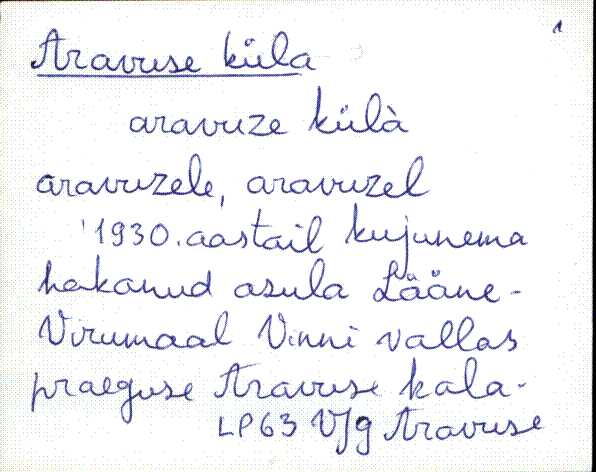 1
Aravuse küla
aravuze külà
aravuzele, aravuzel
'1930. aastail kujunema
hakanud asula Lääne-
Virumaal Vinni vallas
praeguse Aravuse kala-
LP63 V/g Aravuse